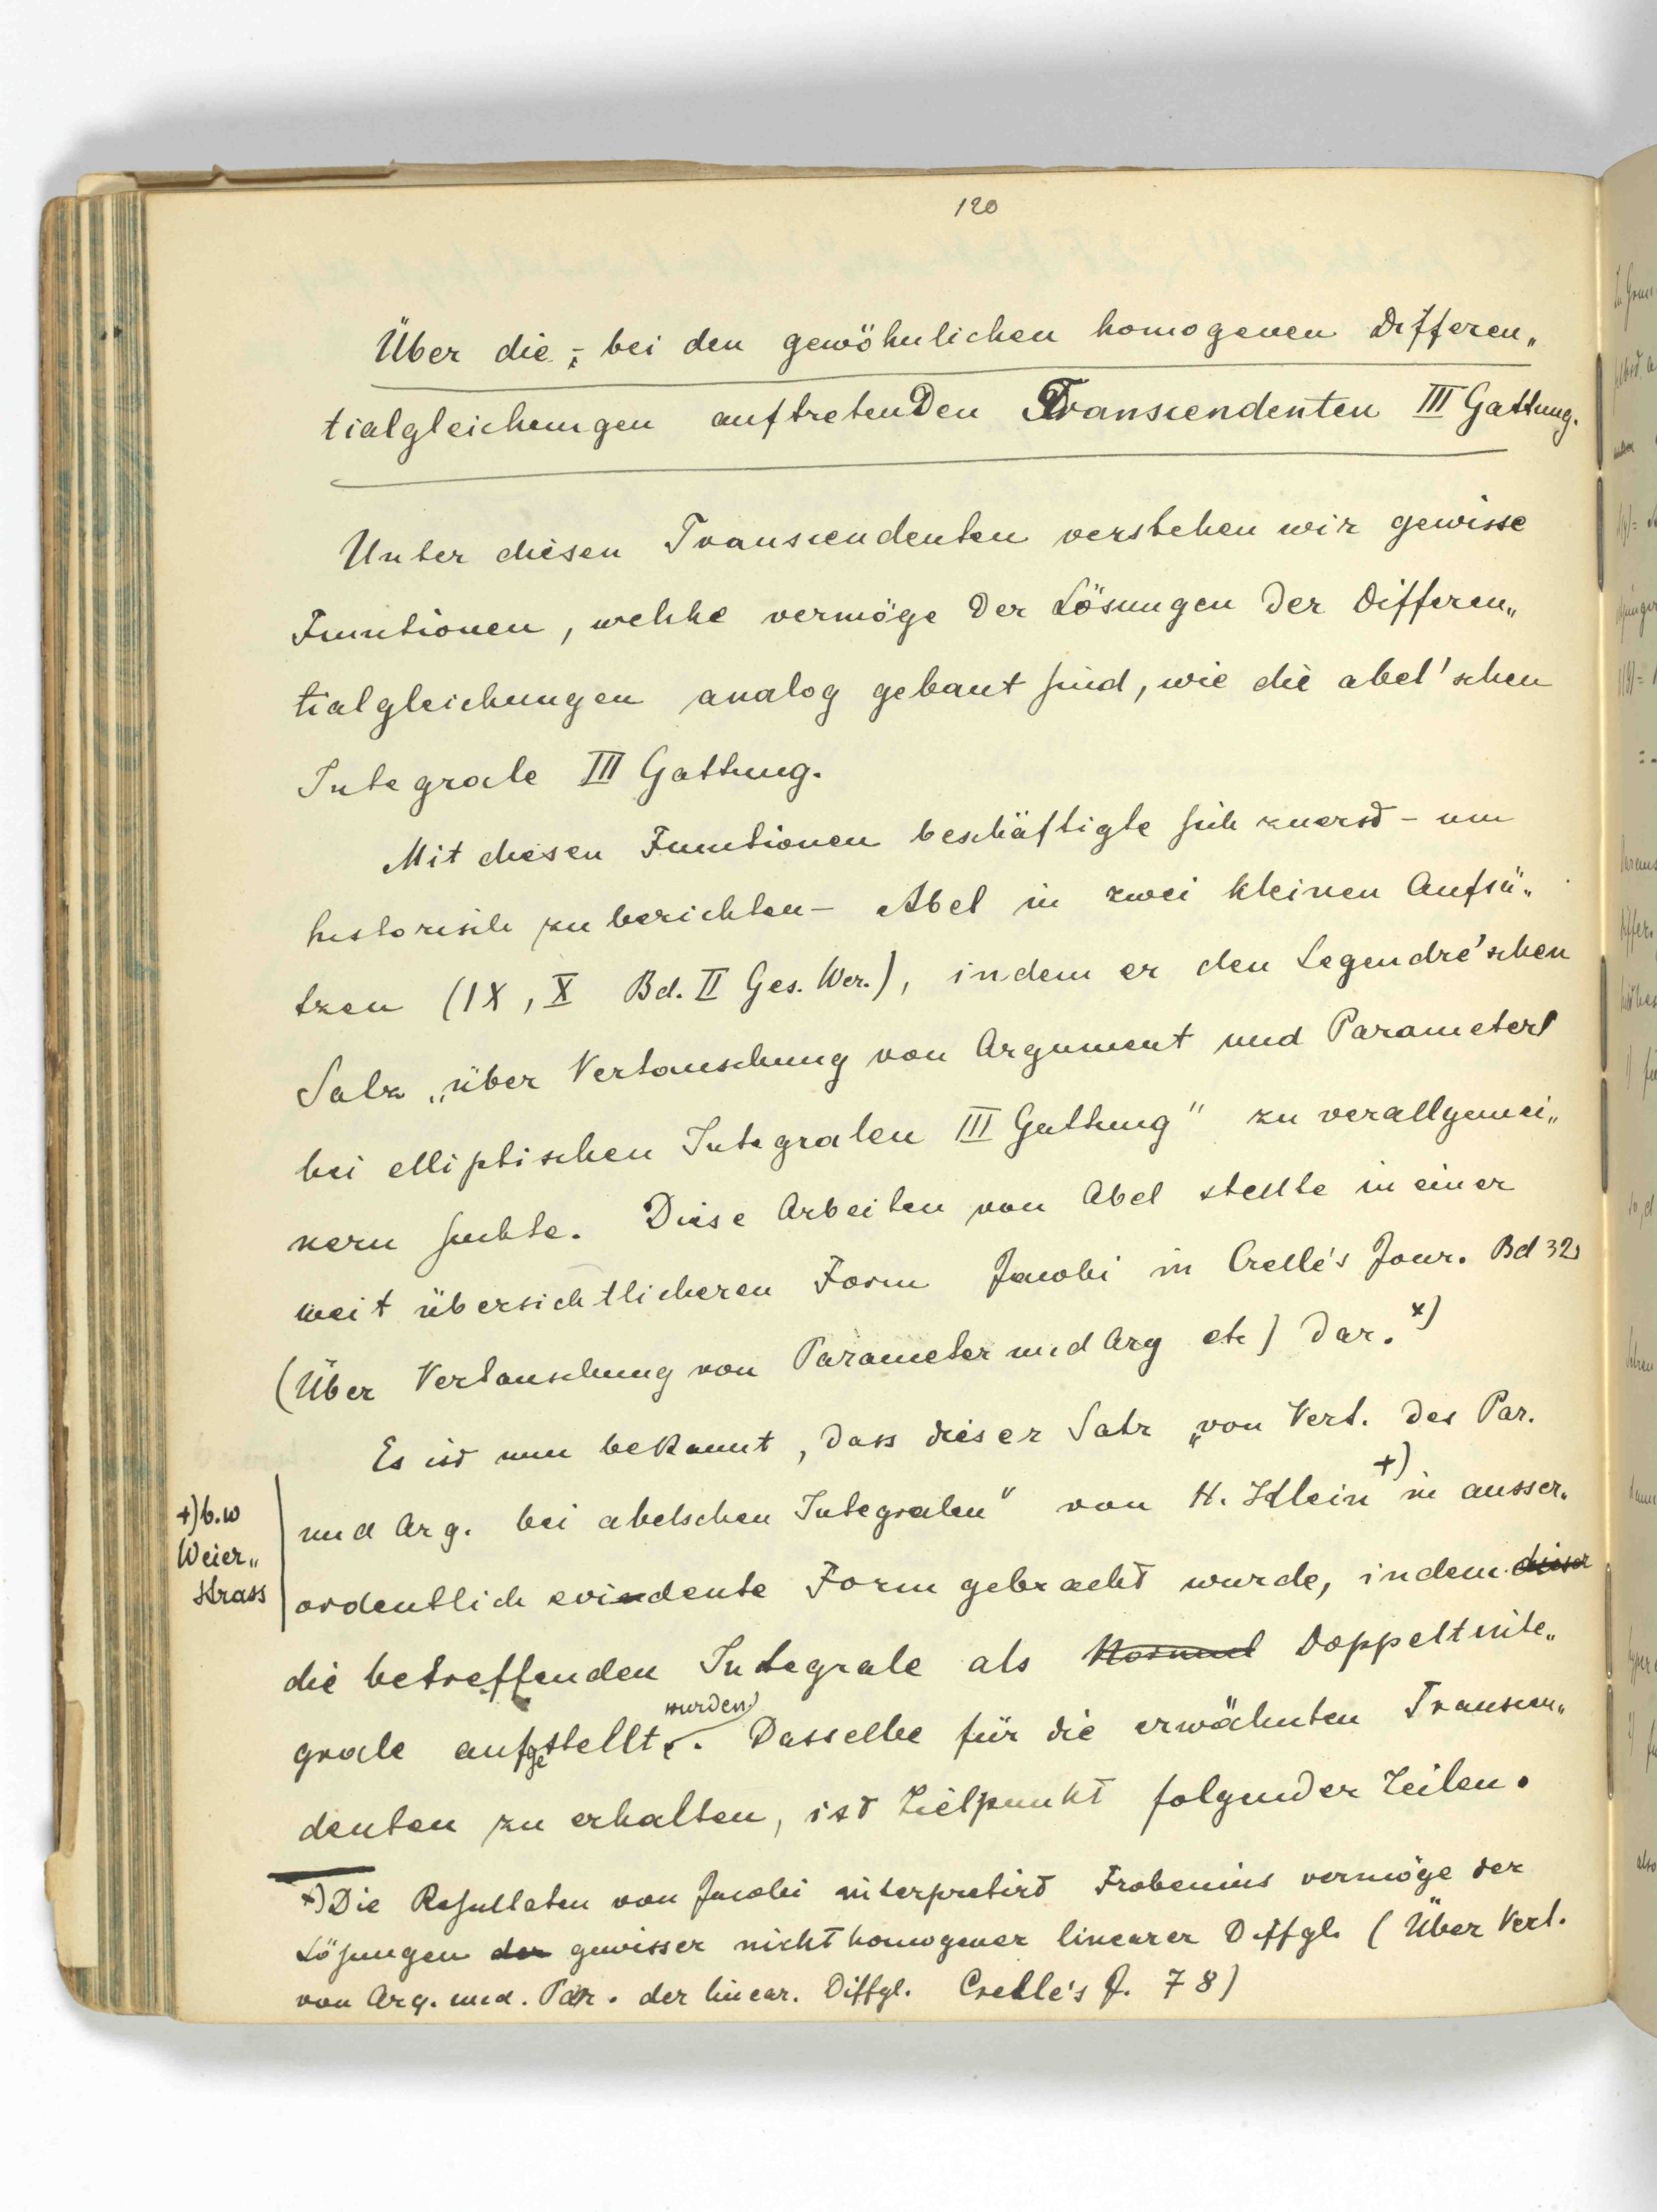 120
Über die, bei den gewöhnlichen homogenen Differen„
tialgleichungen auftretenden Transcendenten III Gattung.
Unter diesen Transcendenten verstehen wir gewisse
Functionen, welche vermöge der Lösungen der Differen„
tialgleichungen analog gebaut sind, wie die abel'schen
Integrale III Gattung.
Mit diesen Functionen beschäftigte sich zuerst – um
historisch zu berichten – Abel in zwei kleinen Aufsä„
tzen (IX, X Bd. II Ges. Wer.), indem er den Legendre'schen
Satz „über Vertauschung von Argument und Parameter
bei elliptischen Integralen III Gattung" zu verallgemei„
nern suchte. Diese Arbeiten von Abel stellte in einer
weit übersichtlicheren Form Jacobi in Crelle's Jour. Bd 32
(Über Vertauschung von Parameter und Arg etc) dar. x)
Es ist nun bekannt, dass dieser Satz „von Vert. des Par.
und Arg. bei abelschen Integralen" von H. Klein +) in ausser„
+) b.w
Weier„
strass
ordentlich evidente Form gebracht wurde, indem dieser
die betreffenden Integrale als Normal Doppeltinte„
grale aufgestellt wurden. Dasselbe für die erwähnten Transcen„
denten zu erhalten, ist Zielpunkt folgender Zeilen.
x) Die Resultaten von Jacobi interpretirt Frobenius vermöge der
Lösungen der gewisser nicht homogener linearer Diffgl. (Über Vert.
von Arg. und. Par. der linear. Diffgl. Crelle's J. 78)